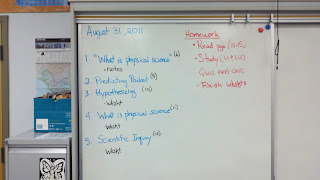 August 31, 2011
1. "What is physical science" (6)
- Notes
2. Predicting Packet (9)
3. Hypothesizing (10)
- Wksht
4. What is physical science (11)
- Wksht
5. Scientific Inquiry (12)
- Wksht
Homework
• Read pgs
• Study
Quiz next class
• Finish wkshts